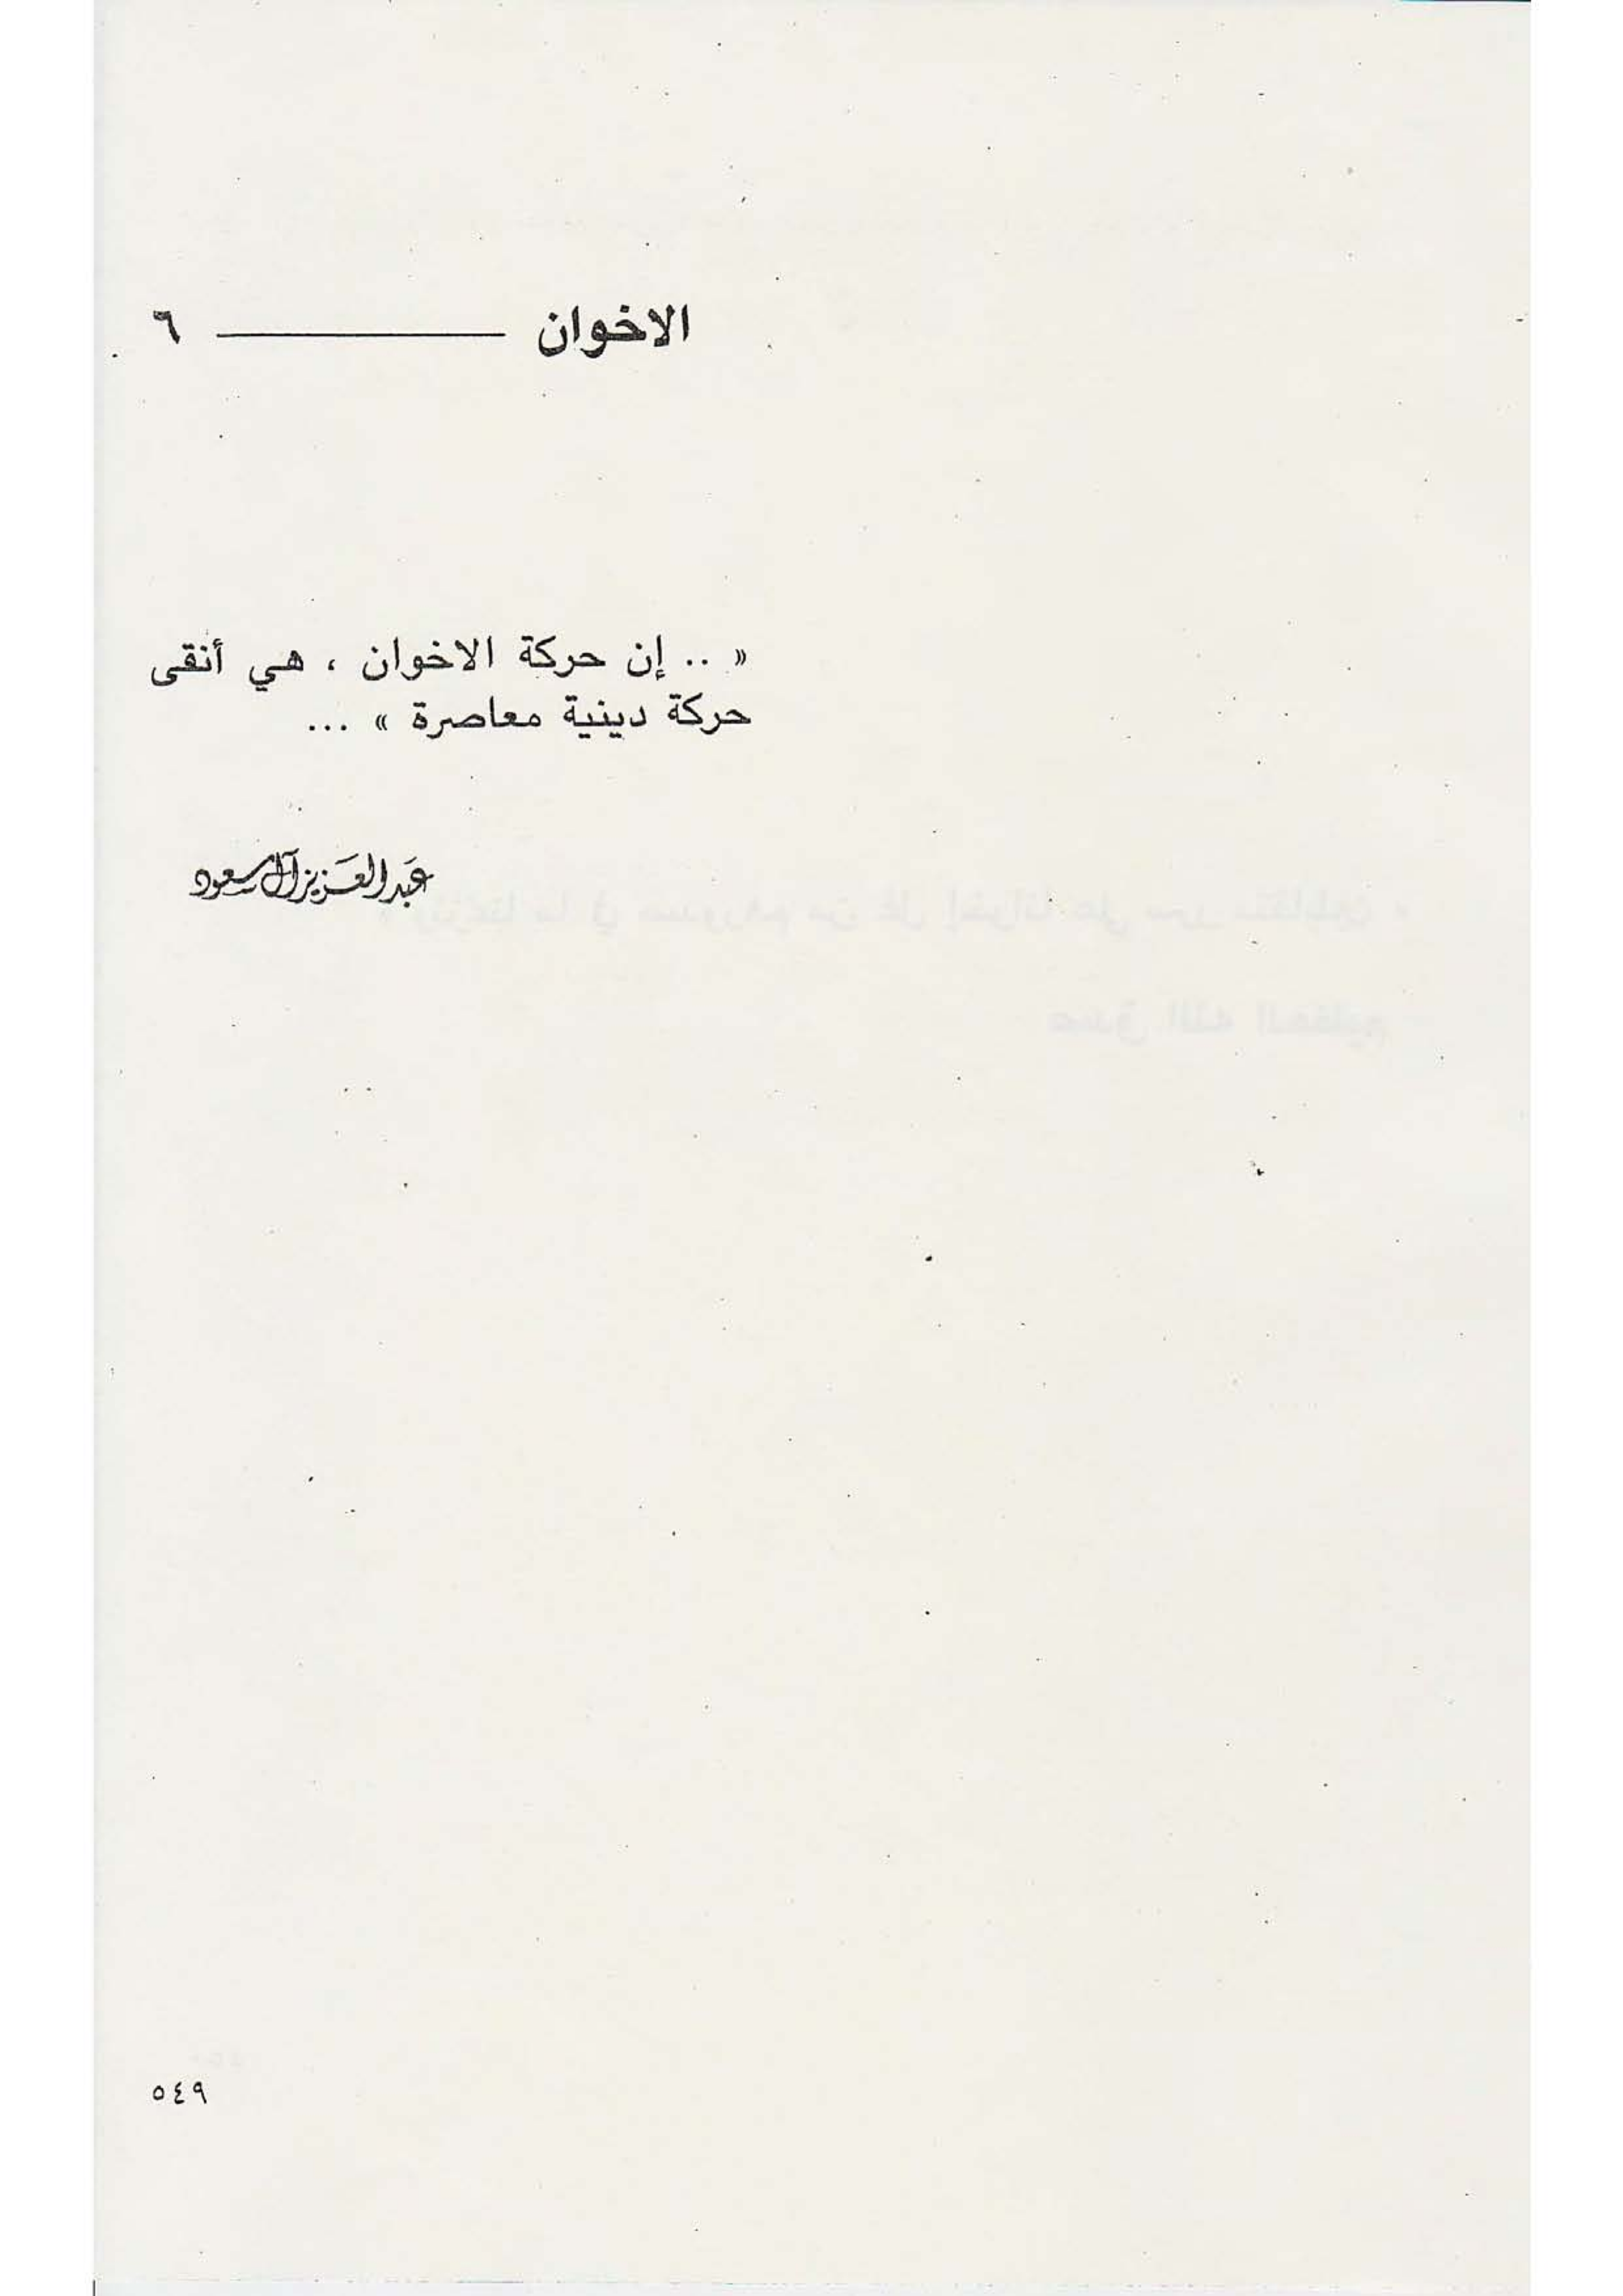 الاخوان ـــــــــــ ٦
« .. إن حركة الاخوان ، هي أنقى
حركة دينية معاصرة » ...
عبدالعَزيز آل سعود
٥٤٩